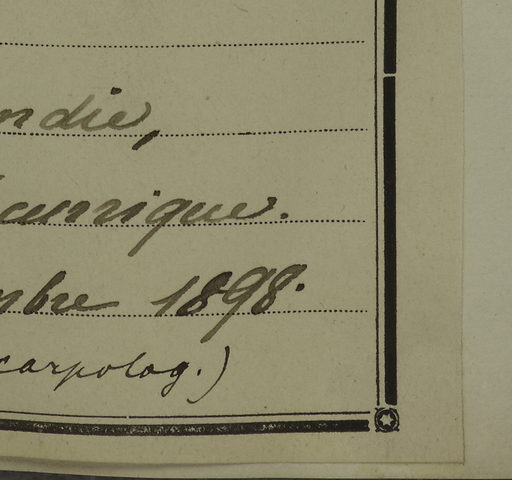 ndie,
mbre 1898.
carpolog.)